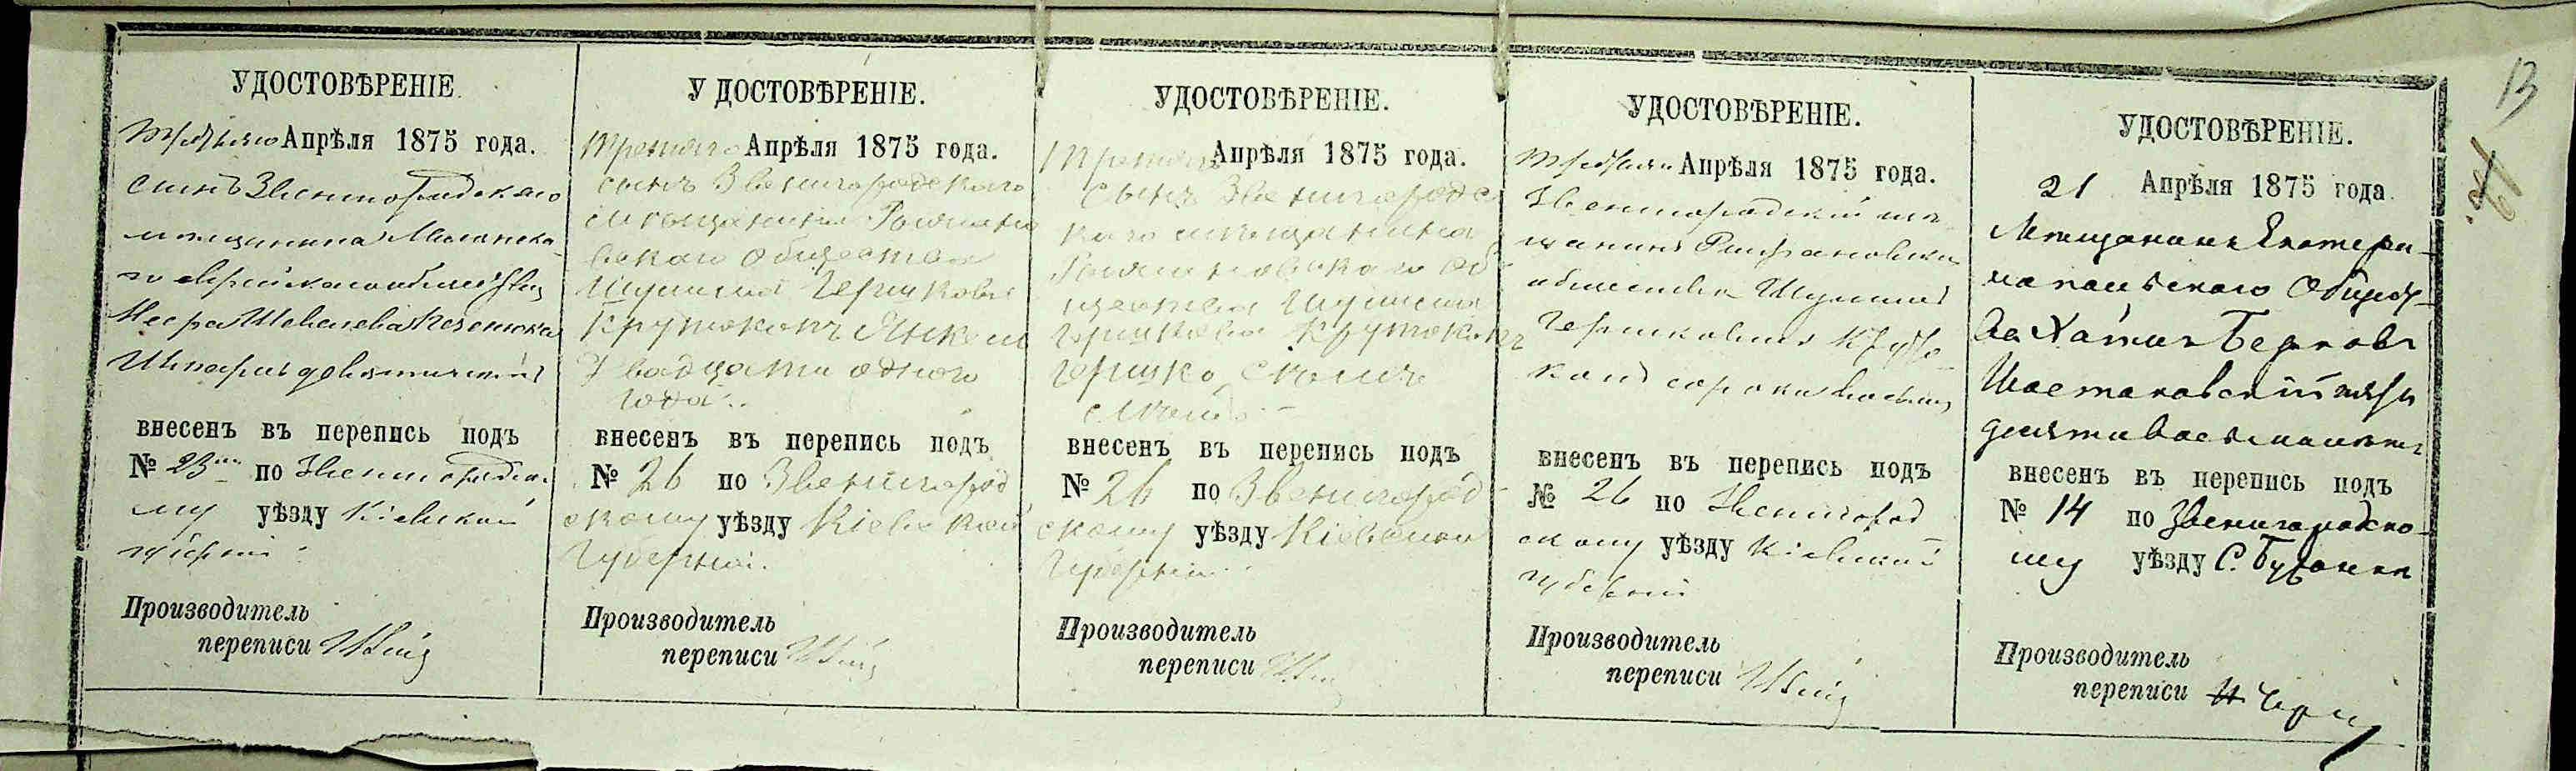 13
УДОСТОВѢРЕНІЕ.
Третьяго Апрѣля 1875 года.
сынъ Звенигородскаго
мѣщанина
го еврейскаго общества
внесенъ въ перепись подъ
№ 23 по Звенигородско-
му уѣзду Кіевской
губерніи
Производитель
переписи
У ДОСТОВѢРЕНІЕ.
Третяго Апрѣля 1875 года.
сынъ Звенигородскаго
мѣщанина
вскаго общества
Шулима Гершкова
Крутоконъ Янкель
Двадцати одного
года
внесенъ въ перепись подъ
№ 26 по Звенигород
скому уѣзду Кіевской
Губерніи.
Производитель
переписи
УДОСТОВѢРЕНІЕ.
Третяго Апрѣля 1875 года.
сынъ Звенигородс
каго мѣщанина
Об-
щества Шулима
Гершкова Крутоконъ
Гершко
внесенъ въ перепись подъ
№ 26 по Звенигород-
скому уѣзду Кіевской
Губерніи
Производитель
переписи
УДОСТОВѢРЕНІЕ.
Третьяго Апрѣля 1875 года.
Звенигородскій мѣ-
щанинъ
общества Шулимъ
Гершковичъ Круто-
конъ сорока восьми
внесенъ въ перепись подъ
№ 26 по Звенигород
скому уѣзду Кіевской
губерніи
Производитель
переписи
УДОСТОВѢРЕНІЕ.
21 Апрѣля 1875 года.
Мѣщанинъ Екатери-
нопольскаго Общест-
ва Хаимъ Берковъ
Шостаковскій пяти
десяти восьми лѣтъ
внесенъ въ перепись подъ
№ 14 по Звенигородско-
му уѣзду С.
Производитель
переписи